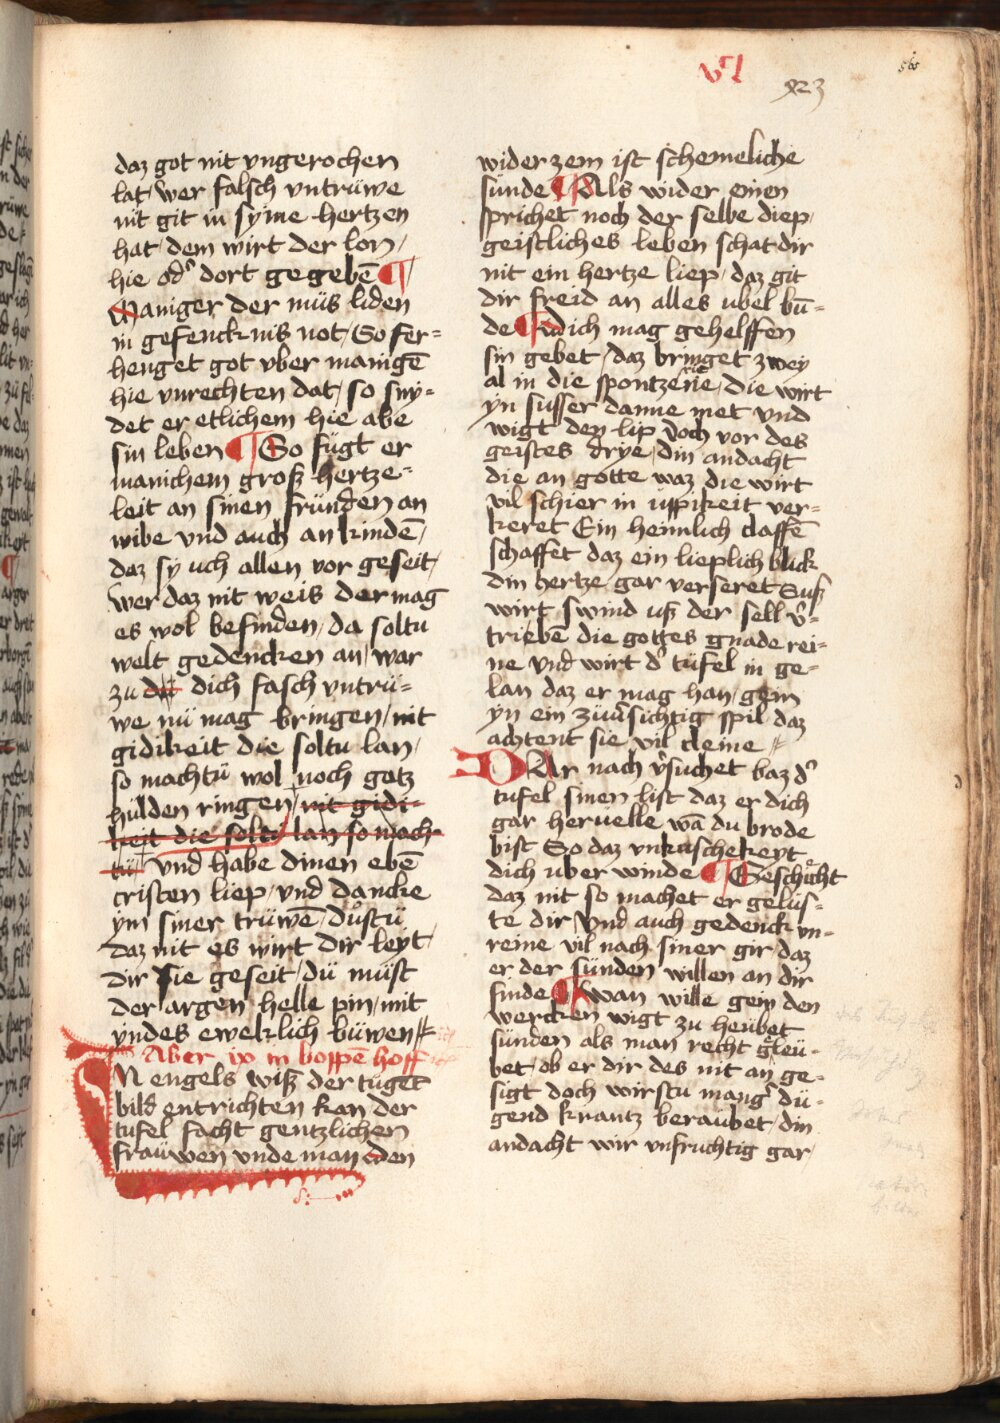 vi
923
566
daz got nit vngerochen
lat / wer falsch vntrüwe
nit git in syme hertzen
hat / dem wirt der lon /
hie od' dort gegebē ¶
Maniger der müs liden
in gefencknis not / So fer=
henget got vber manigē
hie vnrechten dat / so sny=
det er etlichem hie abe
sin leben ¶ So fügt er
manichem groß hertze=
leit an sinen fründen an
wibe vnd auch an kindē /
daz sy uch allen vor geseit /
wer daz nit weis der mag
es wol befinden / da soltu
welt gedencken an / war
zu dich fasch vntrü=
we nü mag bringen / nit
gidikeit die soltu lan /
so machtü wol noch gotz
hulden ringen / nit gidi=
keit die soltu lan so mach
tü vnd habe dinen ebē
cristen liep / vnd dancke
ym siner trüwe / důstü
daz nit es wirt dir leyt /
dir sie geseit / dü müst
der argen helle pin / mit
yndes eweklich büwen
Aber ix in boppē hoff
IN engels wiß der tugēt
bild entrichten kan der
tufel facht gentzlichen
frauwen vnde man den
wider zem ist schemeliche
sünde ¶ Als wider einen
sprichet noch der selbe diep /
geistliches leben schat dir
nit ein hertze liep / daz git
dir freid an alles ubel bū=
de ¶ Dich mag gehelffen
sin gebet / daz bringet zwey
al in die spontzerie / die wirt
yn susser danne met vnd
wigt den lip doch vor des
geistes drye / din andacht
die an gotte waz die wirt
vil schier in üppikeit ver=
keret Ein heimlich claffē
schaffet daz ein lieplich blick
din hertze gar verseret Suß
wirt swind uß der sell v'=
triebē die gottes gnade rei=
ne vnd wirt d' tüfel in ge=
lan daz er mag han / gein
yn ein züu'sichtig spil daz
achtent sie vil cleine
DAr nach v'suchet baz d'
tufel sinen list daz er dich
gar hervelle wā du brode
bist So daz vnkuschekeyt
dich uber winde ¶ Geschicht
daz nit so machet er gelüs=
te dir / vnd auch gedenck vn=
reine vil nach siner gir daz
er der sünden willen an dir
finde ¶ wan wille gein den
wercken wigt zu heübet
sünden als man recht gleü=
bet / ob er dir des nit an ge=
sigt doch wirstu mang' dü=
gend krantz beraubet / din
andacht wir vnfruchtig gar /